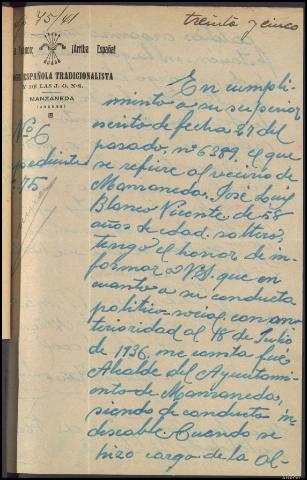 45/41
treinta y cinco
¡Arriba España!
ESPAÑOLA TRADICIONALISTA
Y DE LAS J. O. N-S.
MANZANEDA
(ORENSE)
Nº 6
75
En cumpli-
miento a su superior
escrito de fecha 27 del
pasado, nº 6389, el que
se refiere al vecino de
Manzaneda, José Luis
Blanco Vicente de 58
años de edad, soltero,
tengo el honor de in-
formar a V.S. que en
cuanto a su conducta
politico-social con an-
terioridad al 18 de Julio
de 1936, me consta fué
Alcalde del Ayuntami-
ento de Manzaneda,
siendo de conducta in-
deseable. Cuando se
hizo cargo de la al-